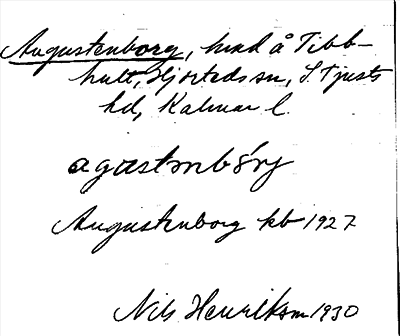 Augustenborg, hmd å Tibb-
hult, Hjorteds sn, S. Tjusts
hd, Kalmar l.
agastmbórj
Augustenborg kb 1927
Nils Henrikson 1930